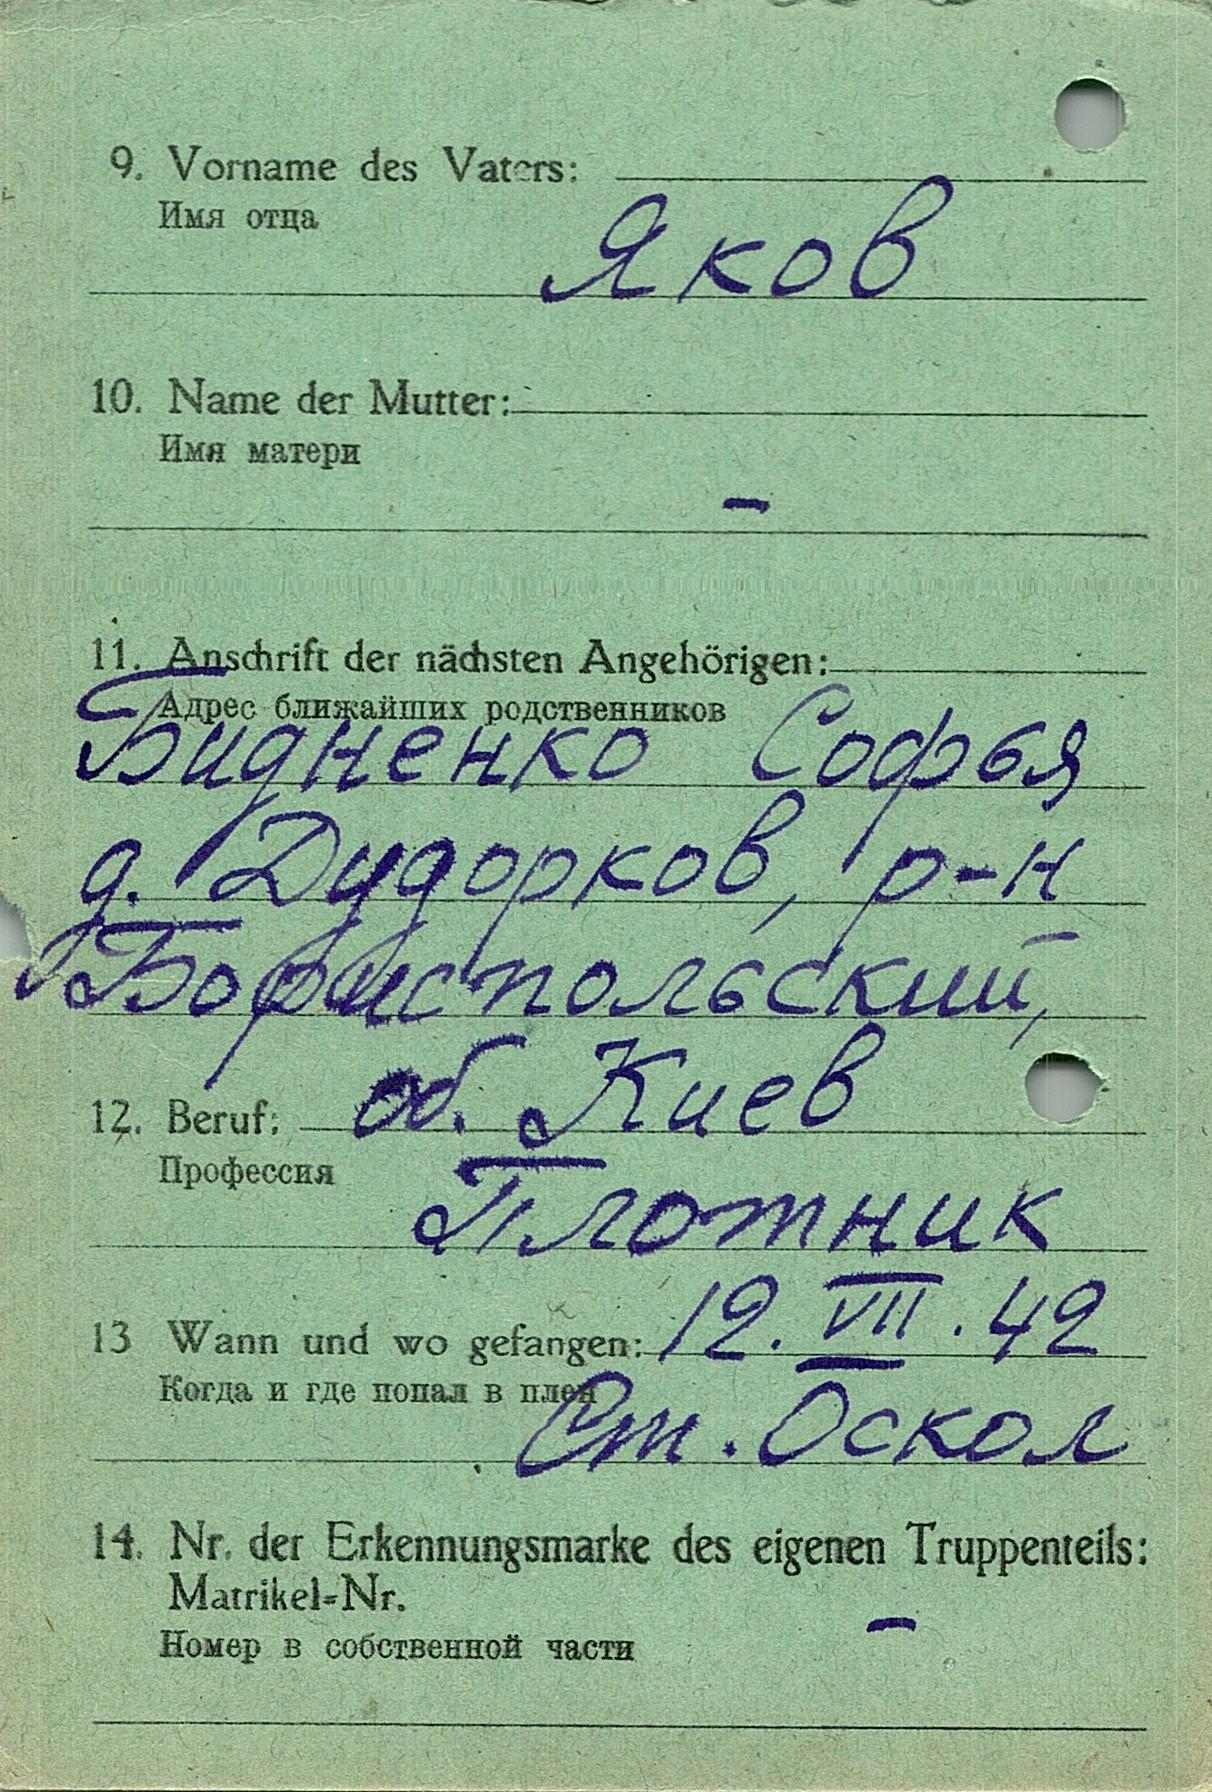 9. Vorname des Vaters:
Имя отца
Яков
10. Name der Mutter:
Имя матери
–
11. Anschrift der nächsten Angehörigen:
Адрес ближайших родственников
Бидненко Софья
д. Дударков, р-н
Бориспольский,
12. Beruf: об. Киев
Профессия
Плотник
13 Wann und wo gefangen: 12. VII. 42
Когда и где попал в плен
Ст. Оскол
14. Nr. der Erkennungsmarke des eigenen Truppenteils:
Matrikel=Nr.
–
Номер в собственной части